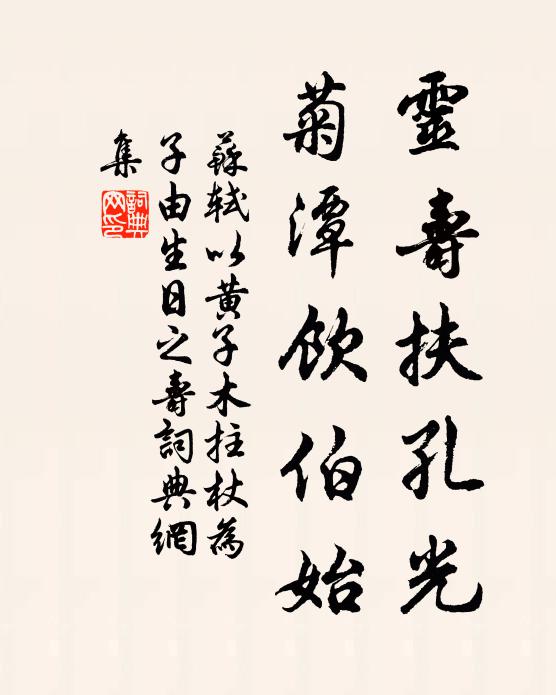 靈壽扶孔光
菊潭飲伯始
蘇軾以黃子木拄杖為
子由生日之壽詞典網
集
詞典網印